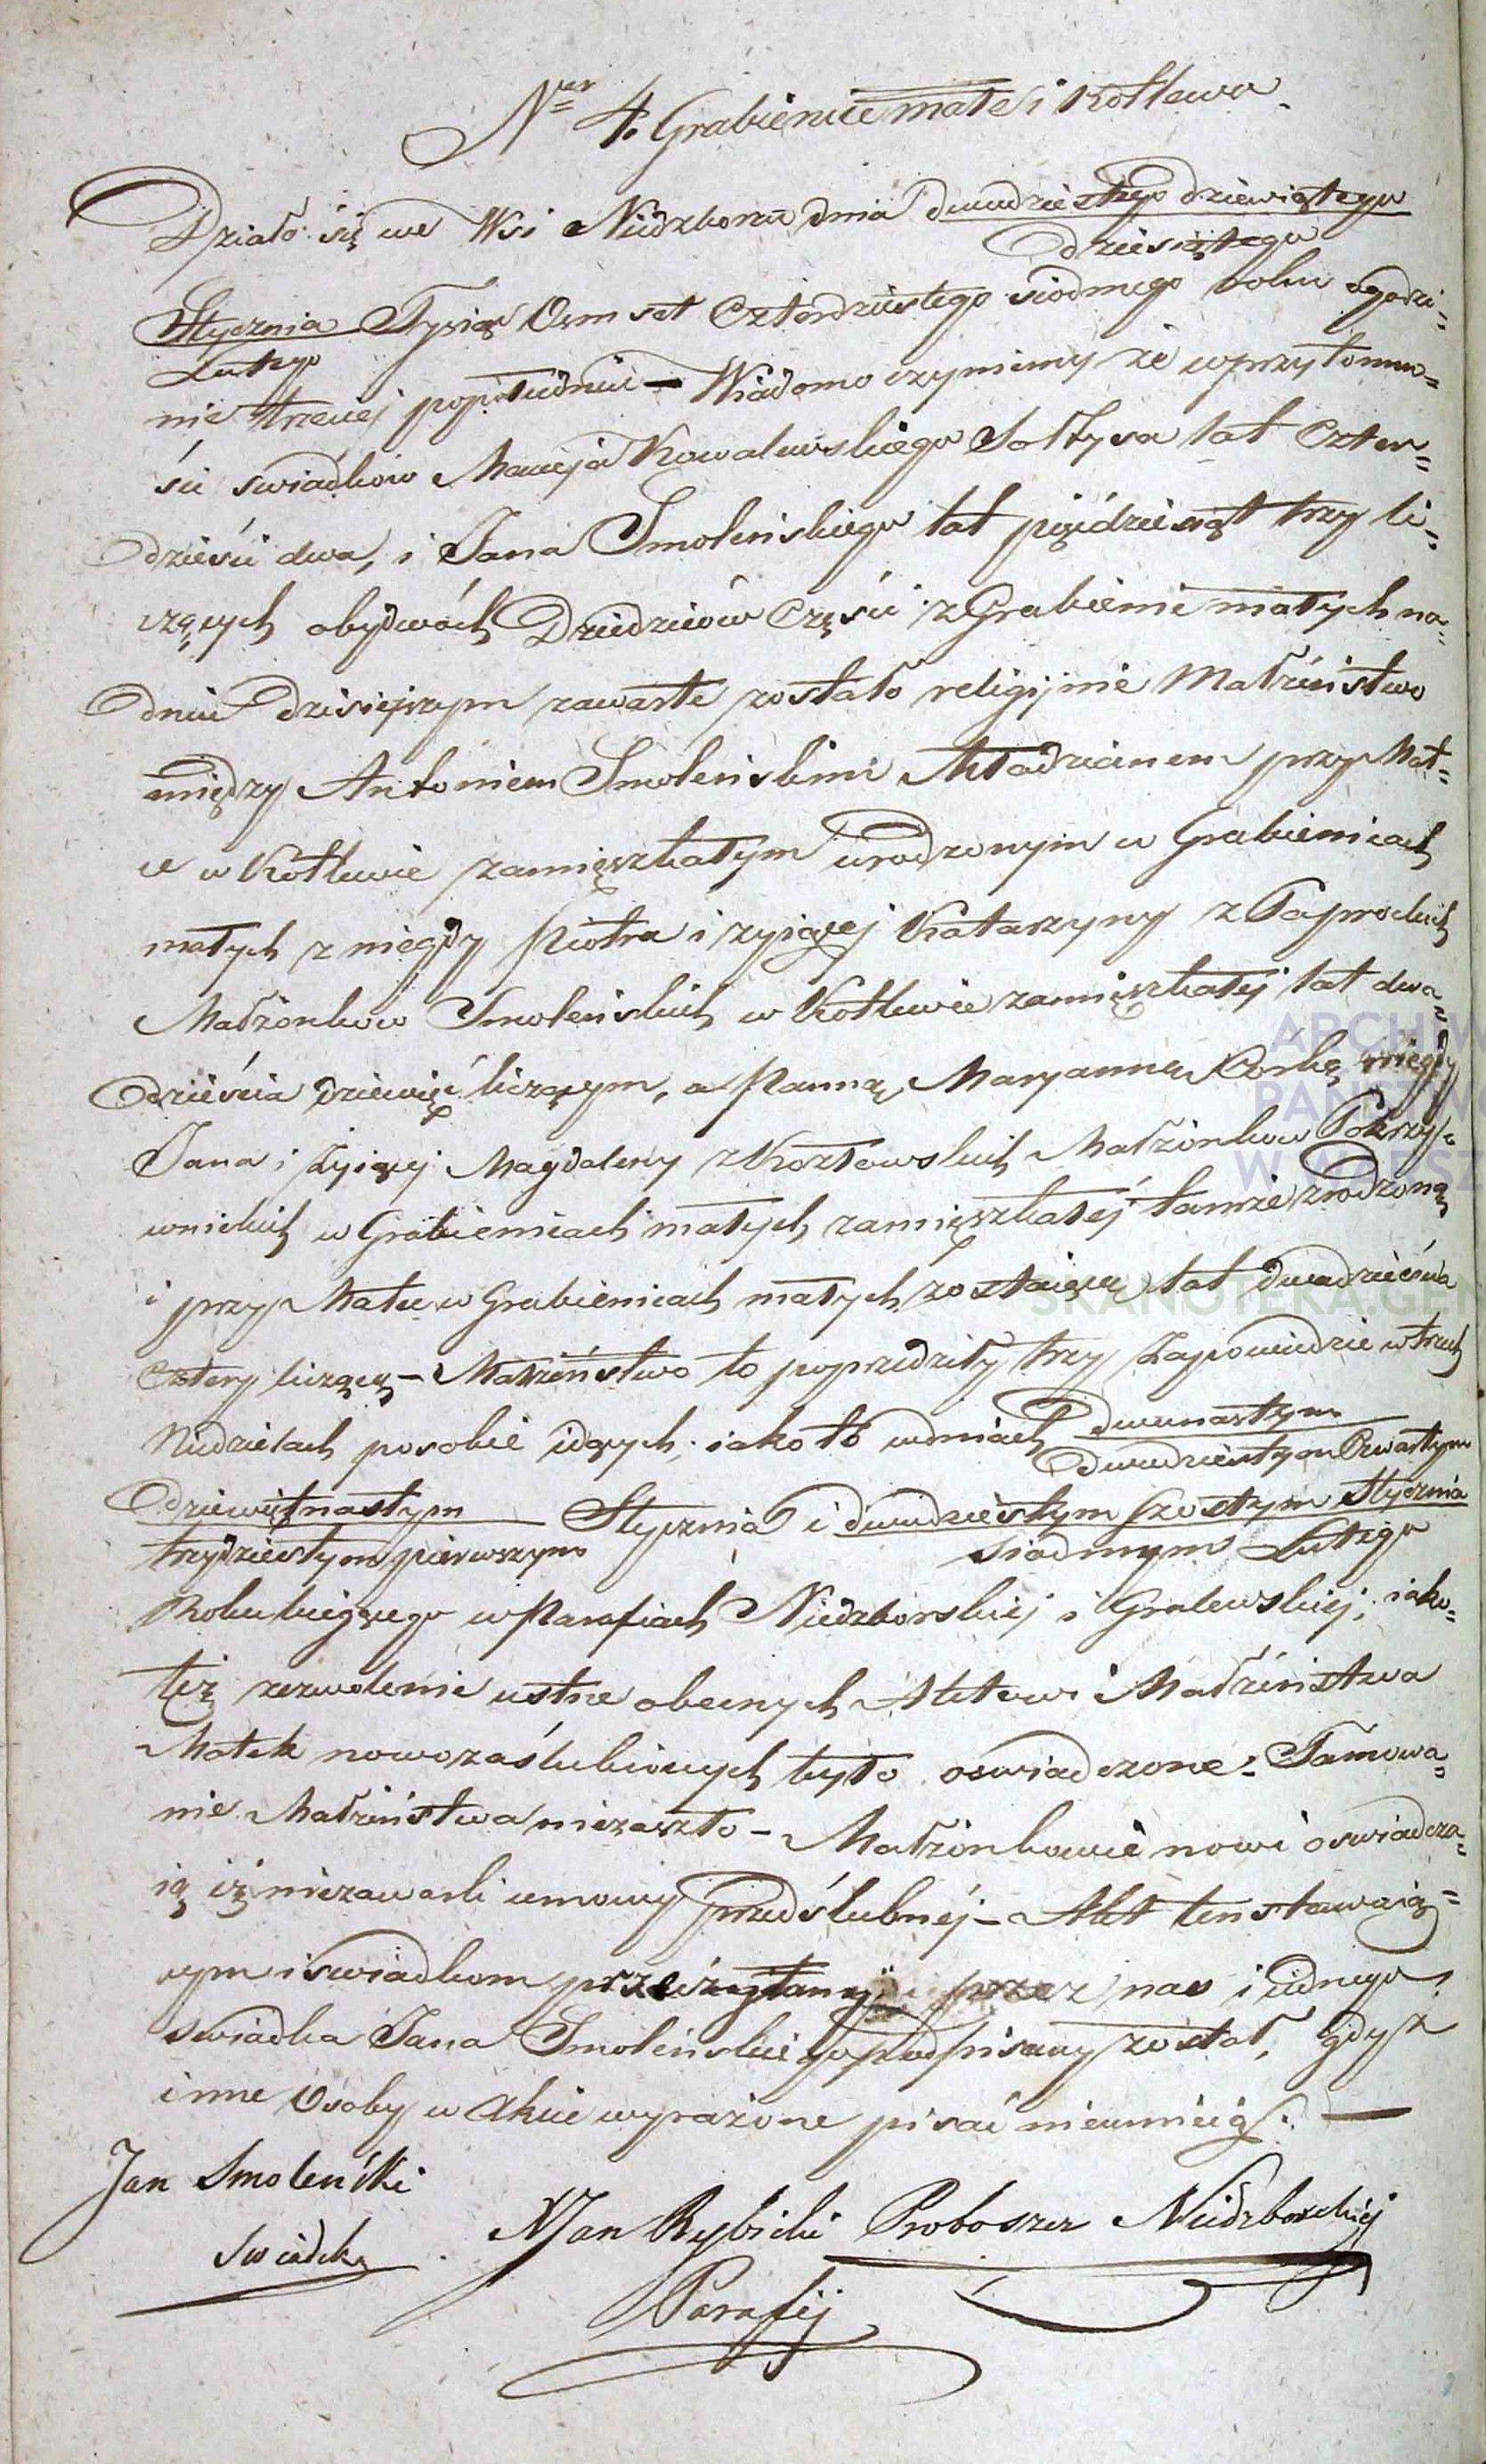 Ner 4. Grabienice małe i Kotlewa.
Działo się we Wsi Niedzborzu dnia dwudziestego dziewiątego
dziesiątego
Stycznia Tysiąc Osmset Czterdziestego siodmego roku o godzi=
Lutego
nie trzeciej popołudniu — Wiadomo czyniemy że w przytomno=
ści swiadków Macieja Kowalewskiego Sołtysa lat Czter=
dzieści dwa, i Jana Smoleńskiego lat pięćdziesiąt trzy li=
czących obydwóch Dziedziców Części z Grabienic małych na
dniu dzisiejszym zawarte zostało religijnie Małżeństwo
między Antoniem Smoleńskim Młodzianem przy Mat=
ce w Kotlewie zamięszkałym urodzonym w Grabienicach
małych z niegdy Piotra i żyiącej Katarzyny z Paprockich
Małżonków Smoleńskich w Kotlewie zamięszkałej lat dwa=
dzieścia dziewięć liczącym, a Panną Maryanną Corką niegdy
Jana i żyiącej Magdaleny z Kozłowskich Małżonków Pokrzy=
wnickich w Grabienicach małych zamięszkałej tamże zrodzoną
i przy Matce w Grabienicach małych zostaiącą lat dwadzieścia
cztery liczącą — Małżeństwo to poprzedziły trzy Zapowiedzie w trzech
Niedzielach posobie idących, iako to w dniach dwunastym
dwudziestym Czwartym
dziewiętnastym Stycznia i dwudziestym szostym Stycznia
trzydziestym pierwszym siodmym Lutego
Roku bieżącego w Parafiach Niedzborskiej i Gralewskiej; iako=
też zezwolenie ustne obecnych Aktowi Małżeństwa
Matek nowozaślubionych było oswiadczone. Tamowa=
nie Małżeństwa niezaszło — Małżonkowie nowi oswiadcza=
ią iż niezawarli umowy przedślubnéj — Akt ten stawaią=
cym i swiadkom przeczytany przez nas i iednego
swiadka Jana Smoleńskiego podpisany został, gdyż
inne Osoby w Akcie wyrażone pisać nieumieią. —
Jan Smoleński
Swiadek
X Jan Rybicki Proboszcz Niedzborskiéj
Parafij
ARCHIW
PAŃSTWO
W WARSZ
SKANOTEKA.GEN